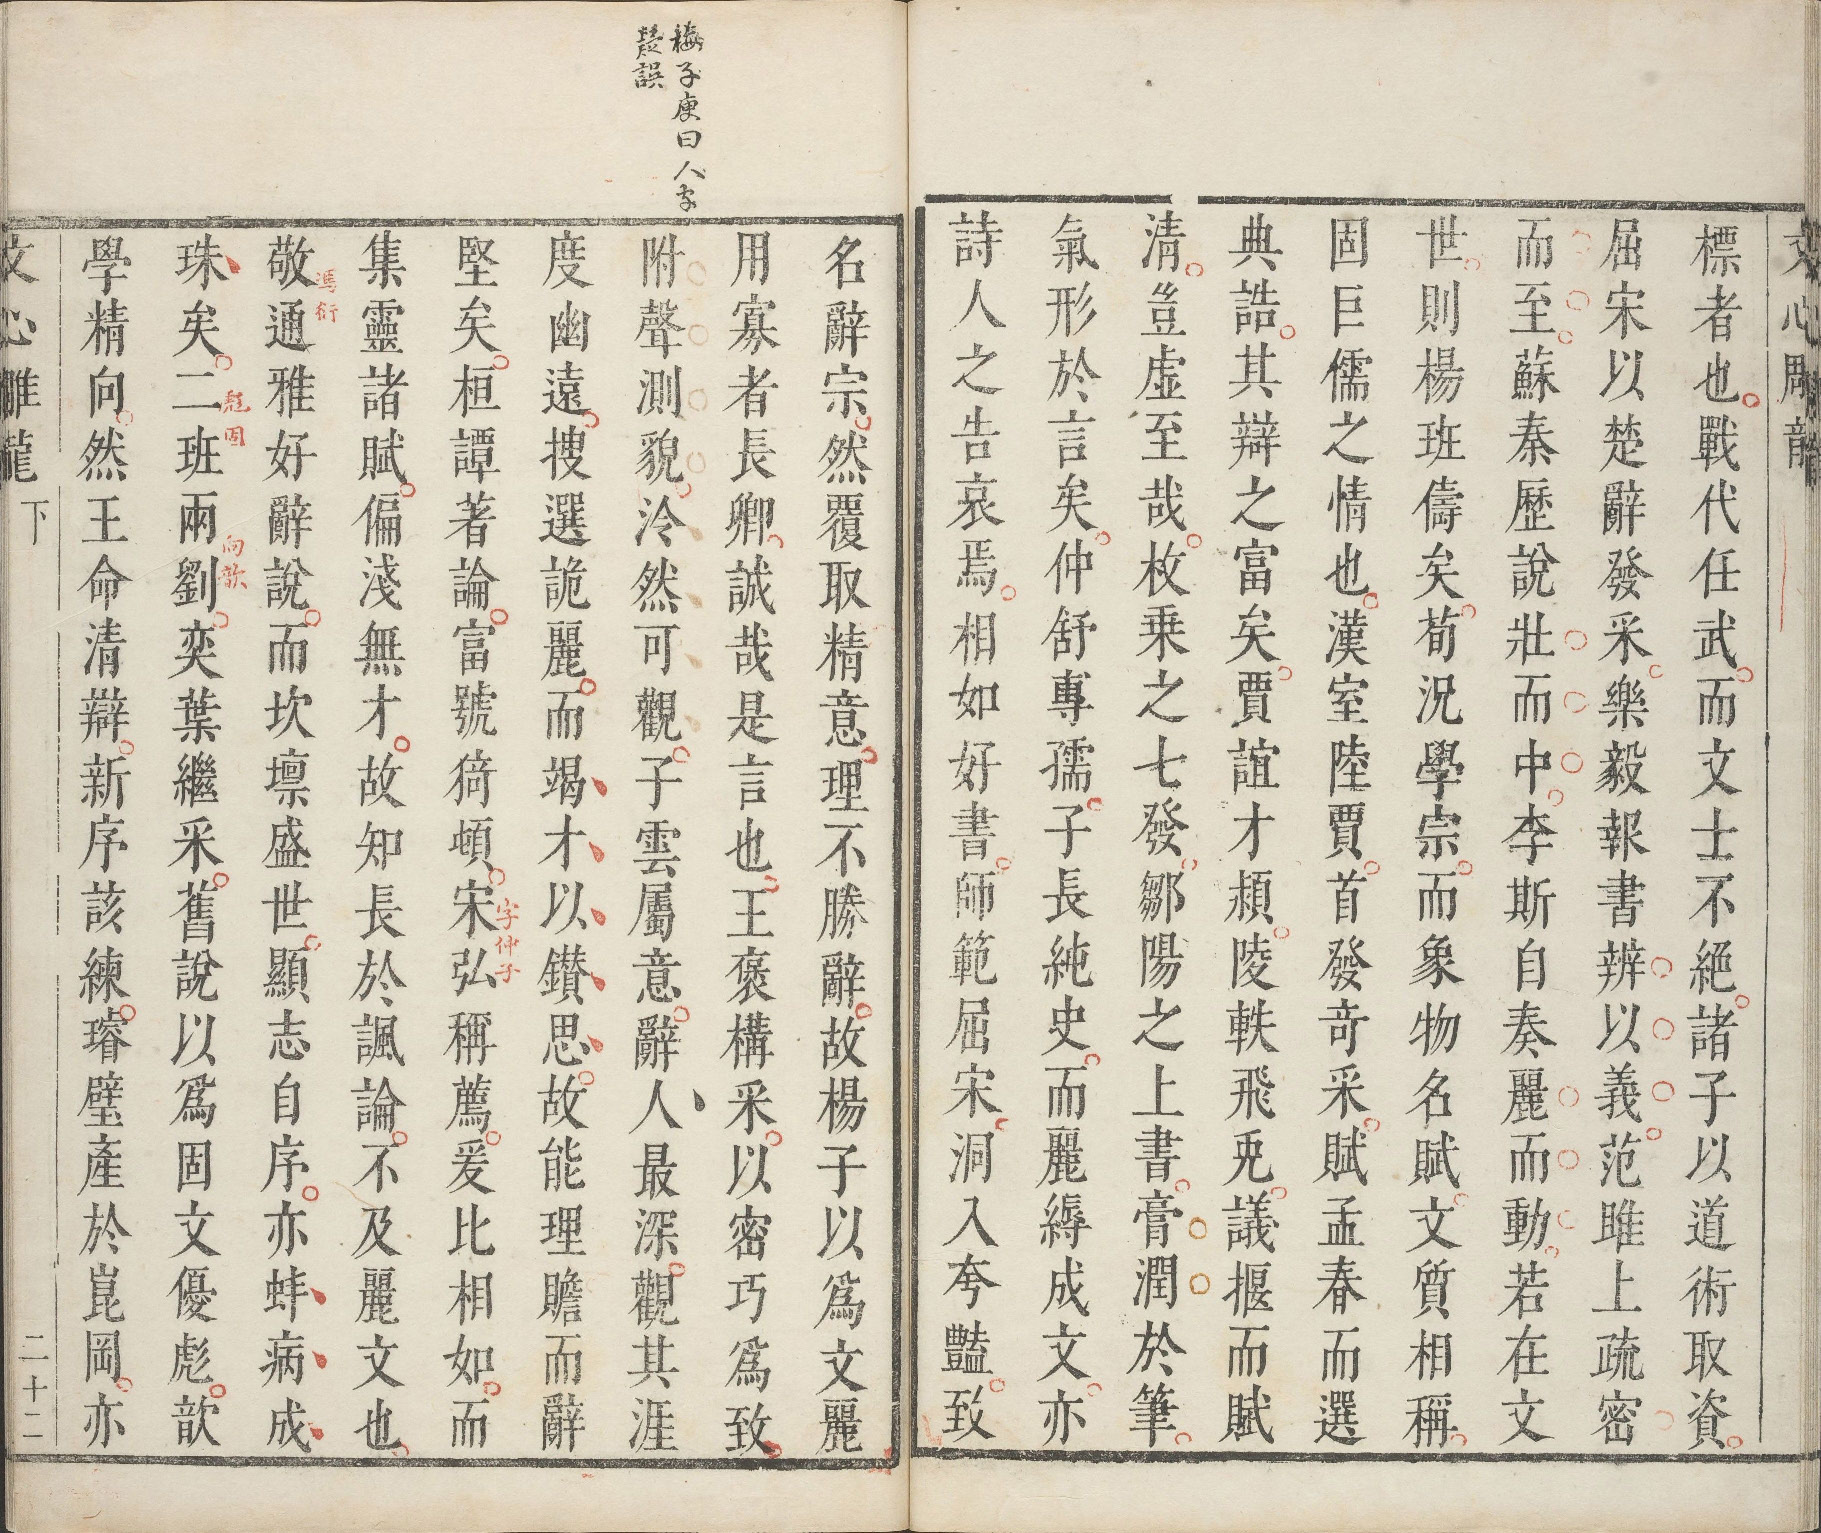 文心雕龍
標者也戰代任武而文士不絕諸子以道術取資
屈宋以楚辭發采樂毅報書辨以義范雎上疏密
而至蘇秦歷說壯而中李斯自奏麗而動若在文
世則楊班儔矣荀況學宗而象物名賦文質相稱
固巨儒之情也漢室陸賈首發奇采賦孟春而選
典誥其辯之富矣賈誼才穎陵軼飛兎議揠而賦
清豈虛至哉枚乗之七發鄒陽之上書膏潤於筆
氣形於言矣仲舒專孺子長純史而麗縟成文亦
詩人之告哀焉相如好書師範屈宋洞入夸豔致
梅子庾曰人字
疑誤
名辭宗然覆取精意理不勝辭故楊子以爲文麗
用寡者長卿誠哉是言也王褒構采以密巧爲致
附聲測貌泠然可觀子雲屬意辭人最深觀其涯
度幽遠搜選詭麗而竭才以鑚思故能理贍而辭
堅矣桓譚著論富號猗頓宋弘稱薦爰比相如而
字仲子
集靈諸賦偏淺無才故知長於諷論不及麗文也
敬通雅好辭說而坎壈盛世顯志自序亦蚌病成
馮衍
珠矣二班兩劉奕葉繼采舊說以爲固文優彪歆
彪固
向歆
學精向然王命清辯新序該練璿璧產於崑岡亦
文心雕龍
下
二十二